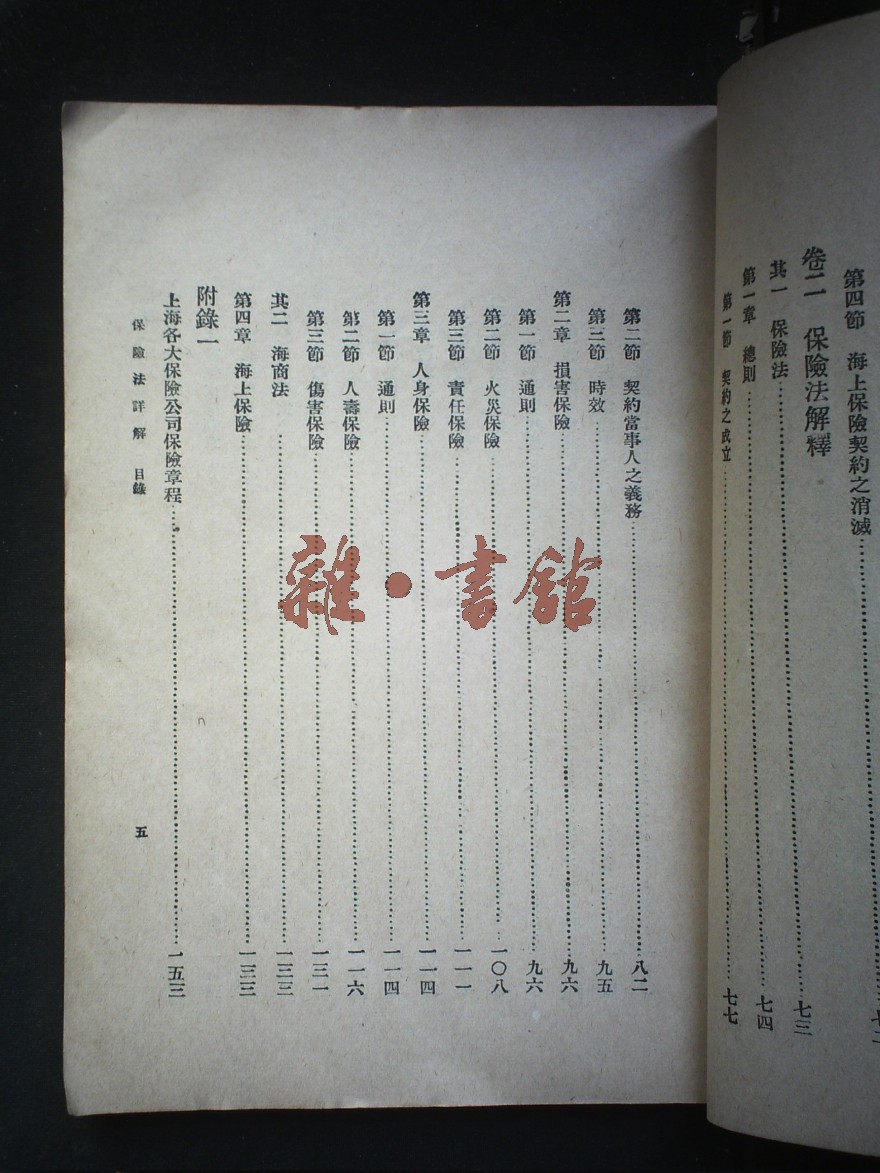 第四節　海上保險契約之消滅
卷二　保險法解釋
其一　保險法…七三
第一章　總則…七四
第一節　契約之成立…七七
第二節　契約當事人之義務…八二
第三節　時效…九五
第二章　損害保險…九六
第一節　通則…九六
第二節　火災保險…一〇八
第三節　責任保險…一一一
第三章　人身保險…一一四
第一節　通則…一一四
第二節　人壽保險…一一六
第三節　傷害保險…一三一
其二　海商法…一三三
第四章　海上保險…一三三
附錄一
上海各大保險公司保險章程…一五三
保險法詳解　目錄　五
雜·書館